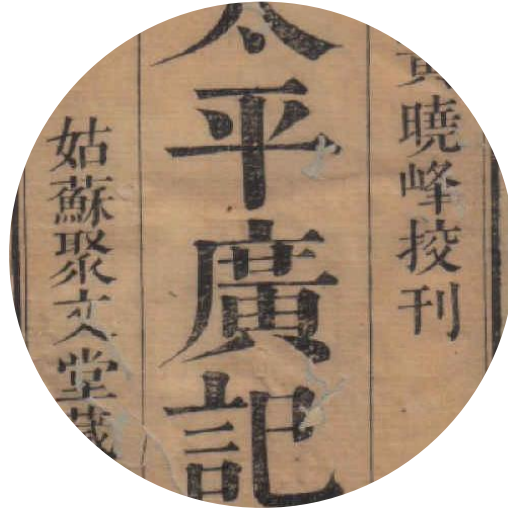 黃曉峰挍刊
太平廣記
姑蘇聚文堂藏